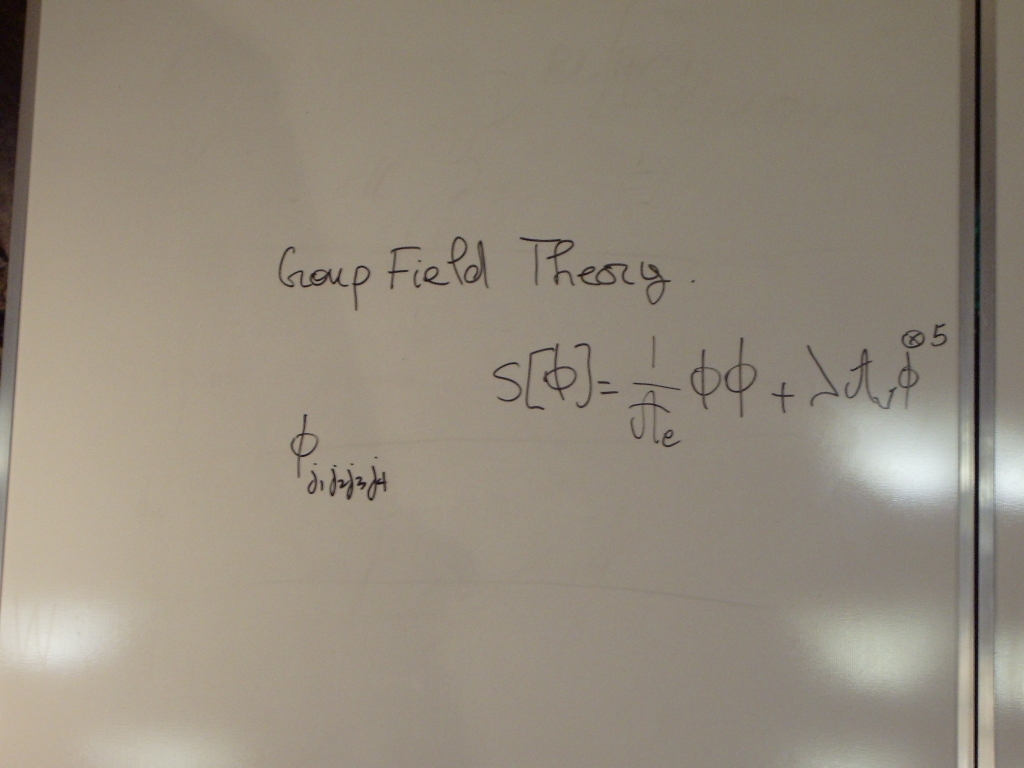 Group Field Theory.
S[ϕ] = 1/𝒜ₑ ϕϕ + λ𝒜ᵥϕ^⊗5
ϕ_j₁j₂j₃j₄